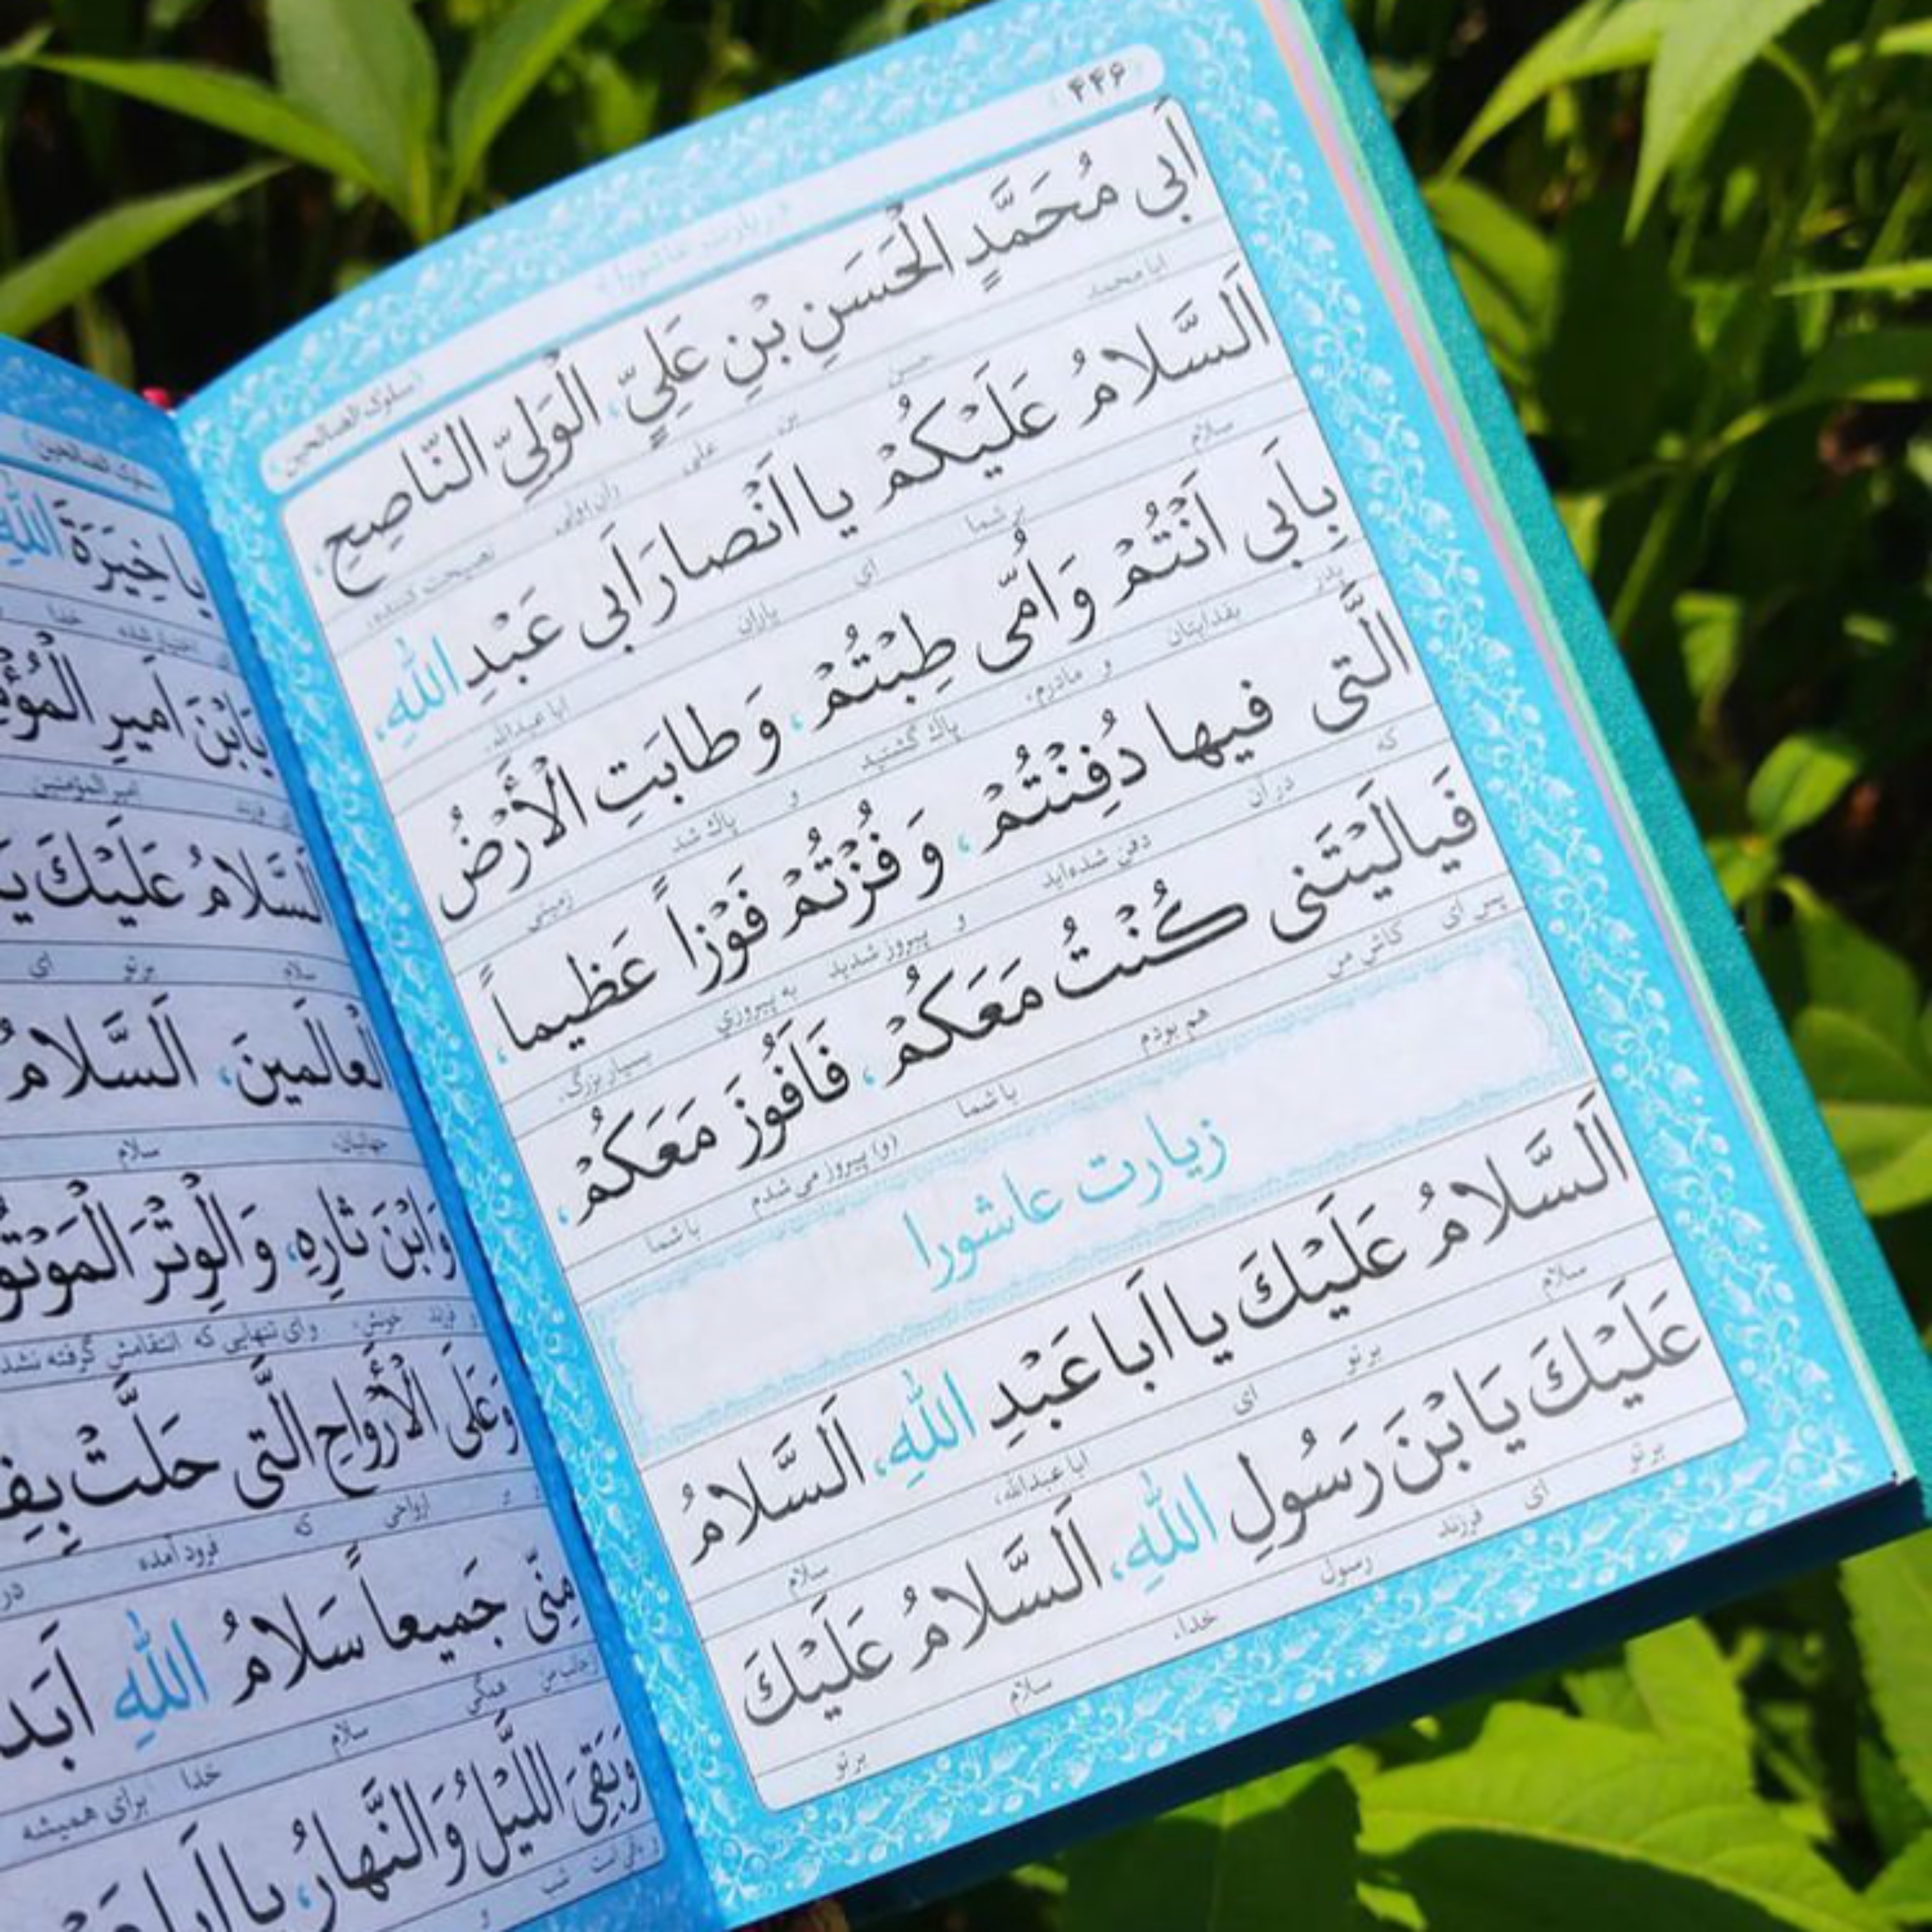 ۴۴۶
زیارت عاشورا
سلوک الصالحین
اَبی مُحَمَّدٍ الْحَسَنِ بْنِ عَلِیٍّ، الْوَلِیِّ النّاصِحِ،
ابا محمد حسن بن علی نصیحت کننده،
اَلسَّلامُ عَلَیْکُمْ یا اَنْصارَ اَبی عَبْدِ اللهِ،
سلام بر شما ای یاران ابا عبدالله،
بِاَبی اَنْتُمْ وَ اُمّی طِبْتُمْ، وَ طابَتِ الْأَرْضُ
پدر بفدایتان و مادرم، پاک گشتید و پاک شد زمینی
الَّتی فیها دُفِنْتُمْ، وَ فُزْتُمْ فَوْزاً عَظیماً،
که در آن دفن شده‌اید و پیروز شدید به پیروزی بسیار بزرگ،
فَیالَیْتَنی کُنْتُ مَعَکُمْ، فَاَفُوزَ مَعَکُمْ،
پس ای کاش من هم بودم با شما (و) پیروز می شدم باشما
زیارت عاشورا
اَلسَّلامُ عَلَیْکَ یا اَبا عَبْدِ اللهِ، اَلسَّلامُ
سلام بر تو ای ابا عبدالله، سلام
عَلَیْکَ یَا بْنَ رَسُولِ اللهِ، اَلسَّلامُ عَلَیْکَ
بر تو ای فرزند رسول خدا، سلام بر تو
یا خِیَرَةَ اللهِ
خدا
یَابْنَ اَمیرِ
فرزند امیرالمؤمنین
اَلسَّلامُ عَلَیْکَ
سلام بر تو ای
الْعالَمینَ، اَلسَّلامُ
جهانیان سلام
وَابْنَ ثارِهِ، وَ الْوِتْرَ
فرزند خونش، و ای تنهایی که انتقامش گرفته نشد
وَعَلَی الْأَرْواحِ الَّتی حَلَّتْ
ارواحی که فرود آمده در
مِنّی جَمیعاً سَلامُ اللهِ
همگی سلام خدا برای همیشه
وَبَقِیَ اللَّیْلُ وَ النَّهارُ، یا اَبا
شب و